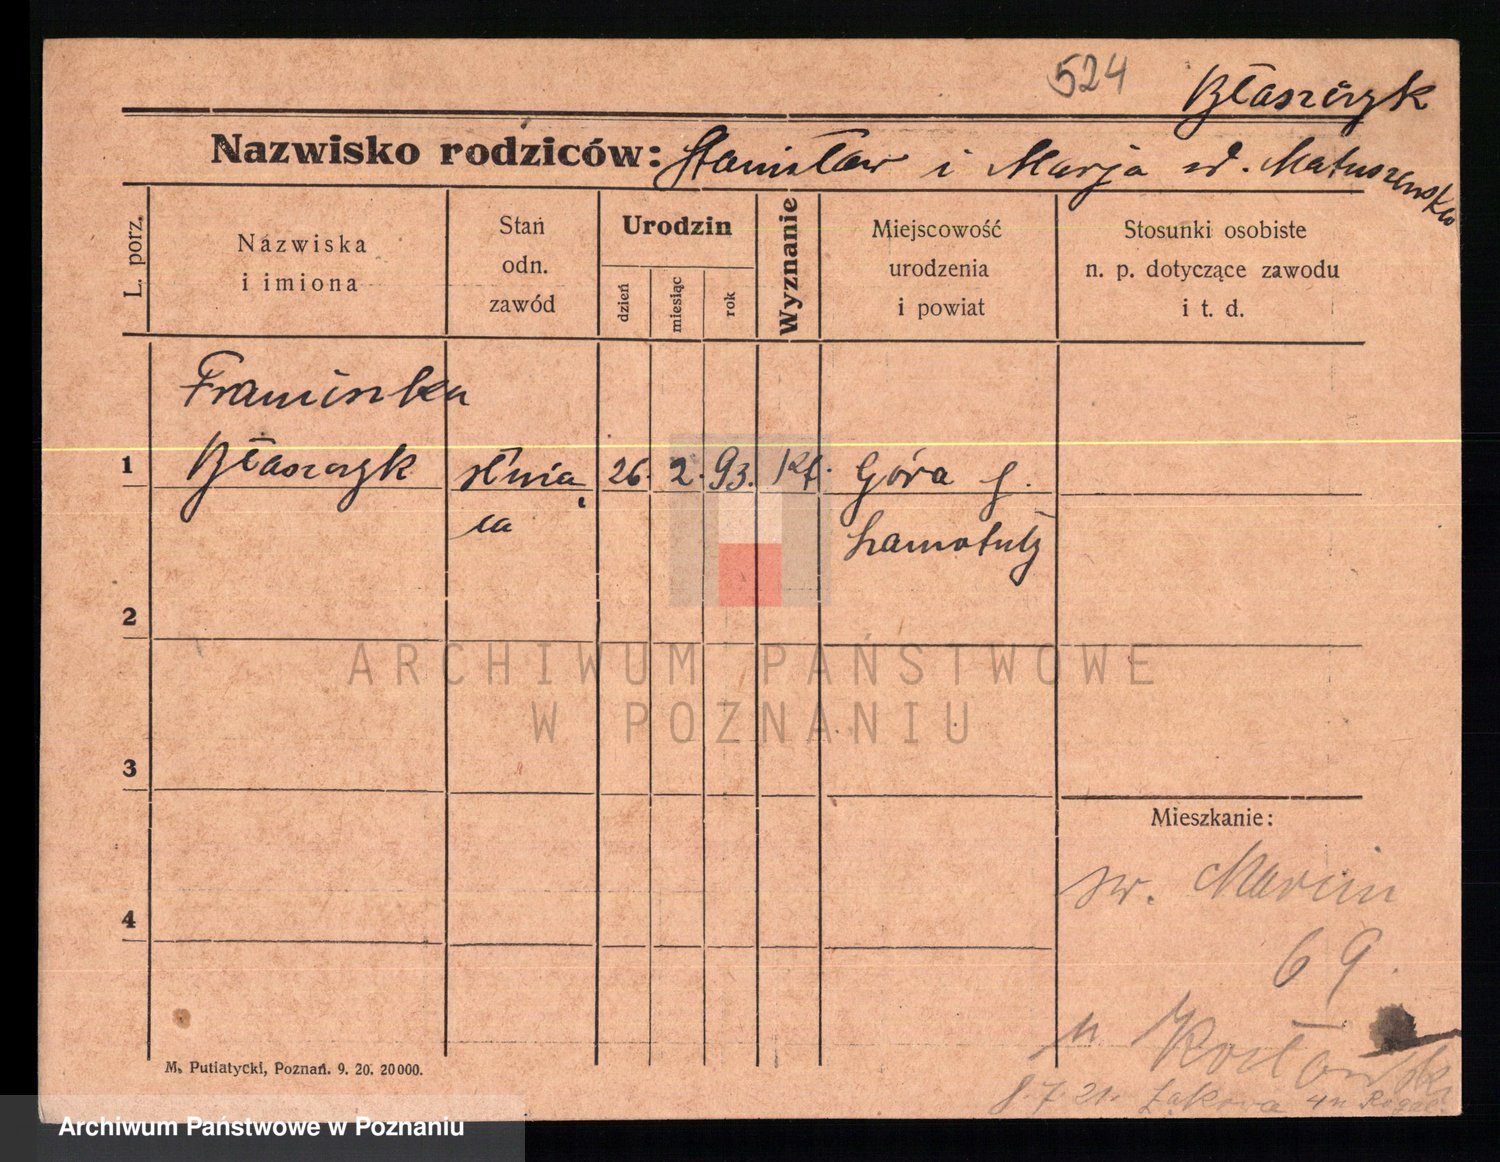 524
Błaszczyk
Nazwisko rodziców: Stanisław i Marja
L. porz.
Nazwiska
i imiona
Stan
odn.
zawód
Urodzin
dzień
miesiąc
rok
Wyznanie
Miejscowość
urodzenia
i powiat
Stosunki osobiste
n. p. dotyczące zawodu
i t. d.
Franciszka
1 Błaszczyk służą 26. 2. 93. Kt. Góra
ca Szamotuły
2
ARCHIWUM PAŃSTWOWE
W POZNANIU
3
Mieszkanie:
św. Marcin
4
69.
M. Putiatycki, Poznań. 9. 20. 20000.
8.7.21. Łąkowa
Archiwum Państwowe w Poznaniu